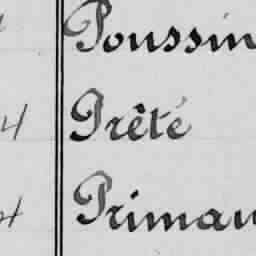 Poussin
4 Prêté
4 Primau